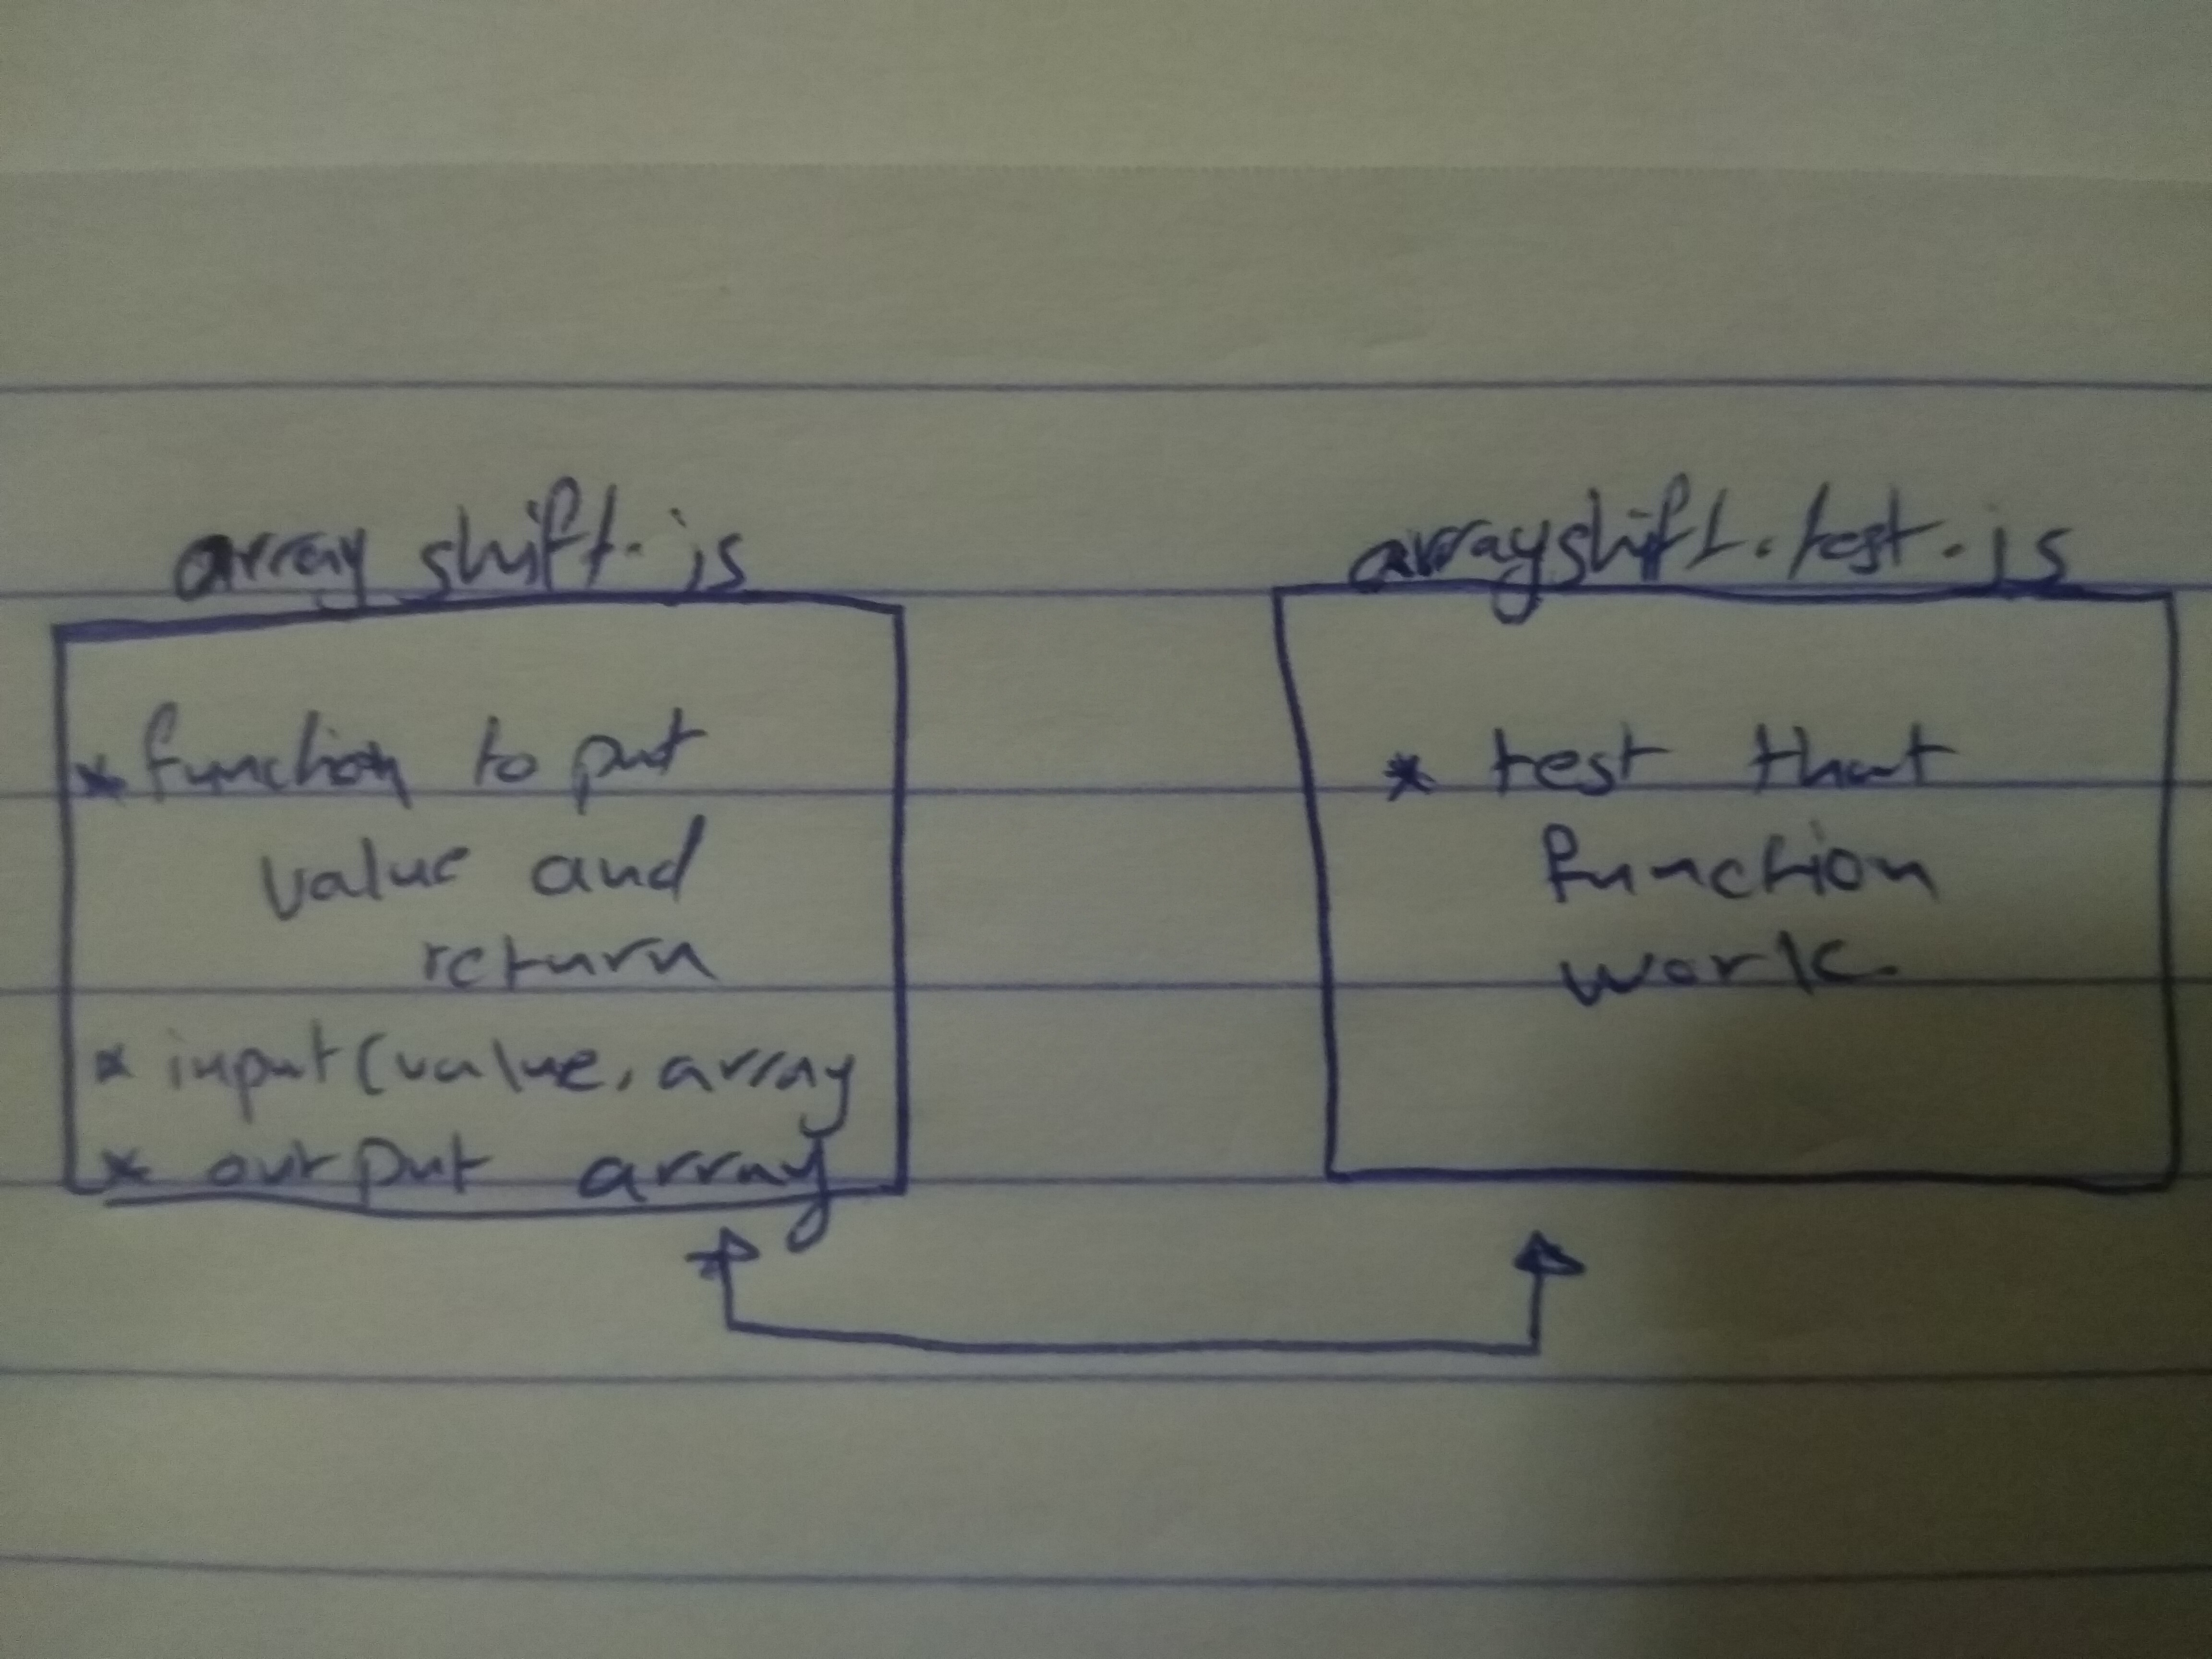 array shift.js
* function to put
value and
return
* input (value, array
* output array
arrayshift.test.js
* test that
function
work